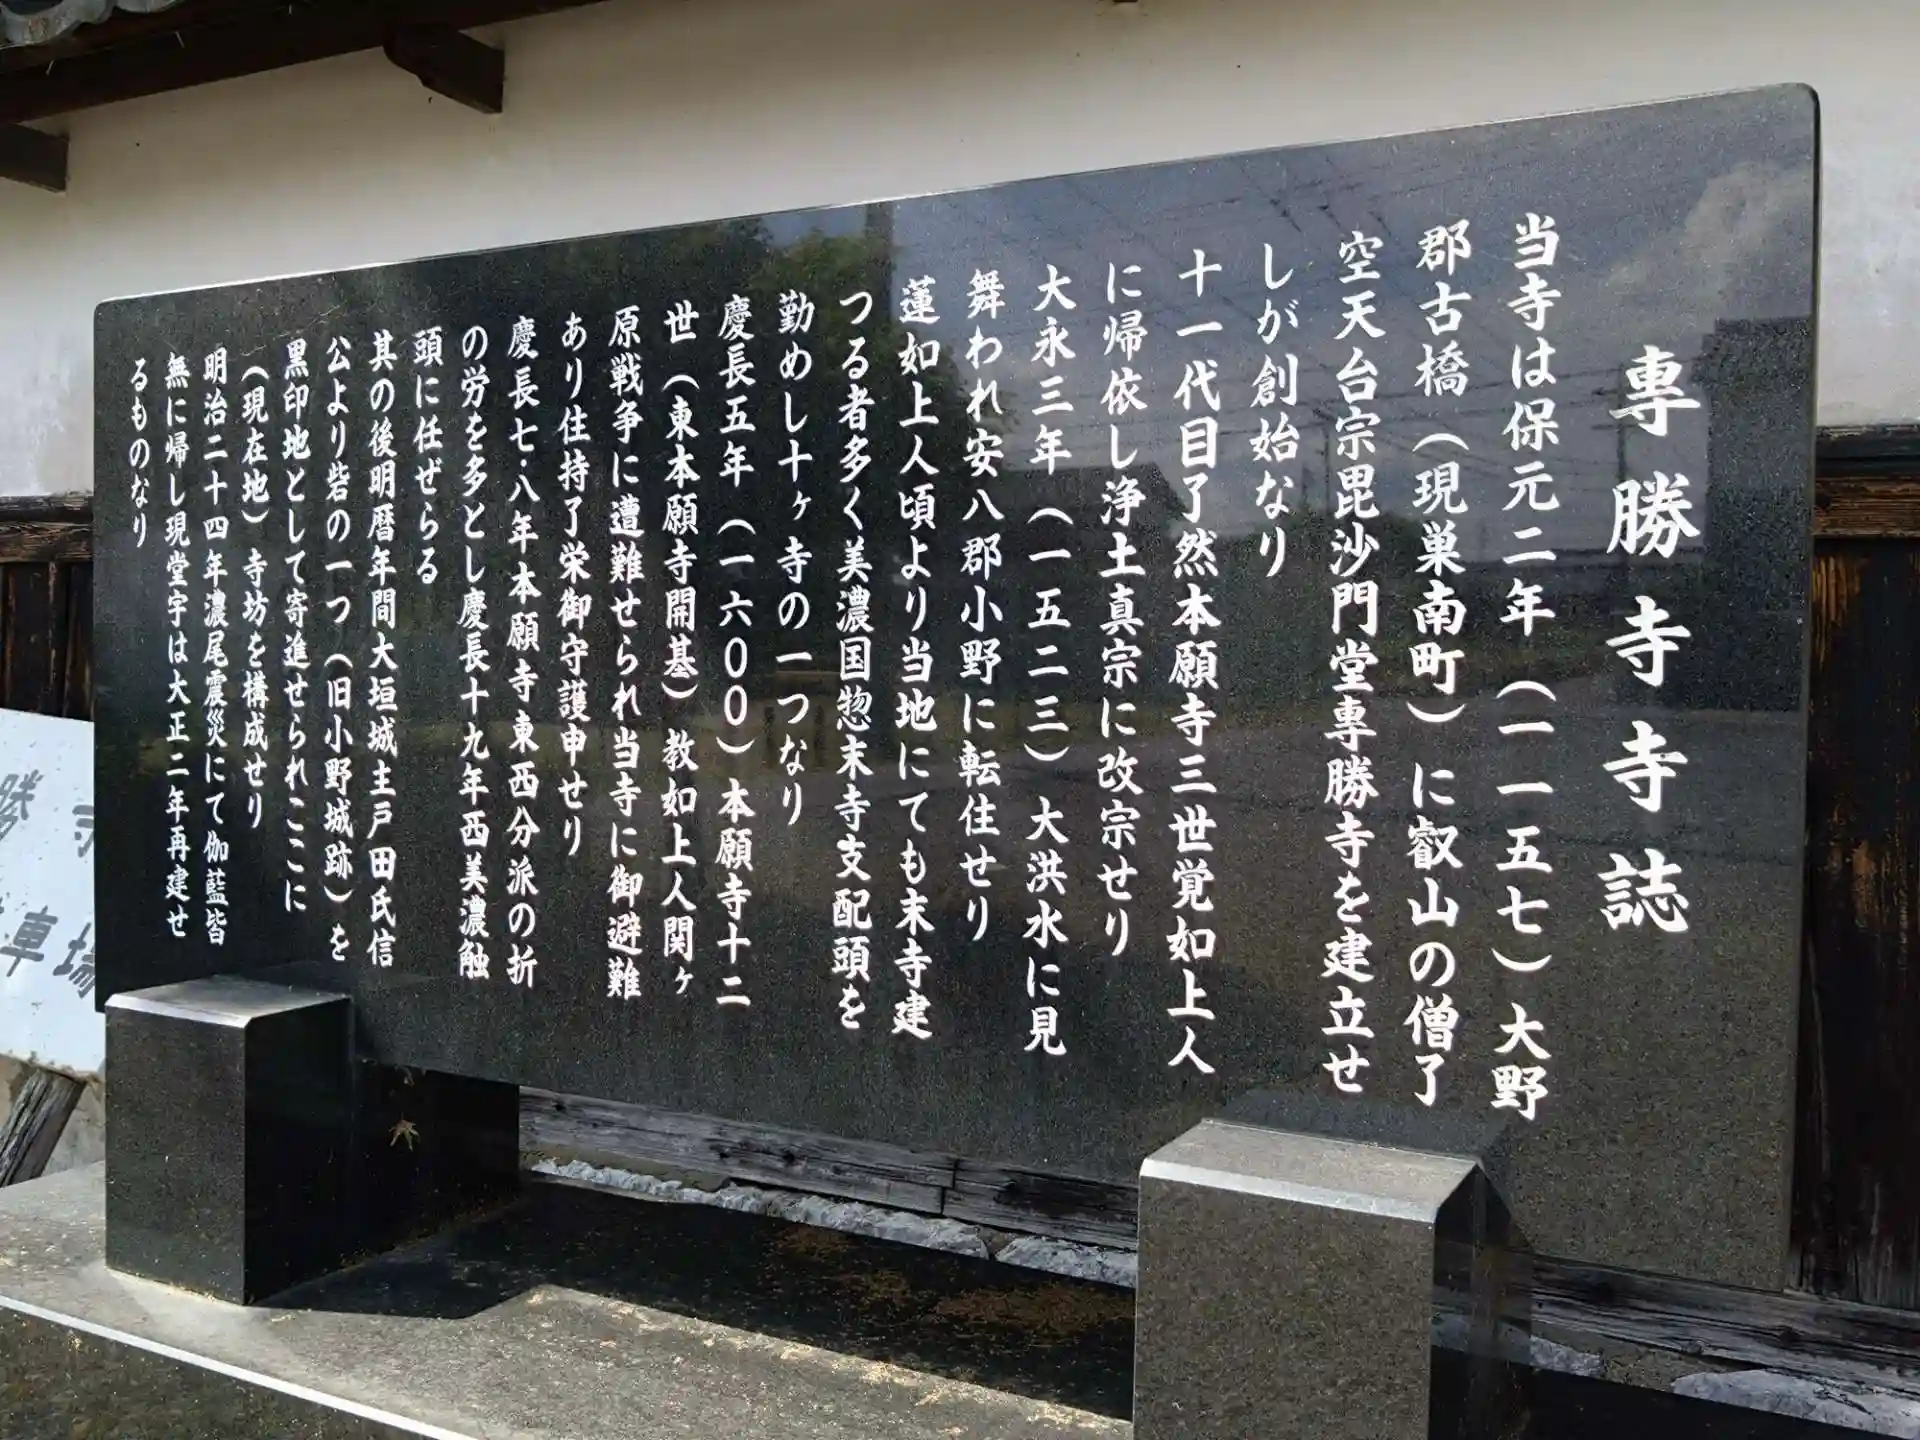 専勝寺寺誌
当寺は保元二年（一一五七）大野
郡古橋（現巣南町）に叡山の僧了
空天台宗毘沙門堂専勝寺を建立せ
しが創始なり
十一代目了然本願寺三世覚如上人
に帰依し浄土真宗に改宗せり
大永三年（一五二三）大洪水に見
舞われ安八郡小野に転住せり
蓮如上人頃より当地にても末寺建
つる者多く美濃国惣末寺支配頭を
勤めし十ヶ寺の一つなり
慶長五年（一六〇〇）本願寺十二
世（東本願寺開基）教如上人関ヶ
原戦争に遭難せられ当寺に御避難
あり住持了栄御守護申せり
慶長七・八年本願寺東西分派の折
の労を多とし慶長十九年西美濃触
頭に任ぜらる
其の後明暦年間大垣城主戸田氏信
公より砦の一つ（旧小野城跡）を
黒印地として寄進せられここに
（現在地）寺坊を構成せり
明治二十四年濃尾震災にて伽藍皆
無に帰し現堂宇は大正二年再建せ
るものなり
勝寺
車場